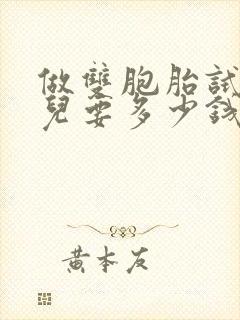 做雙胞胎試
兒要多少錢
黃本友